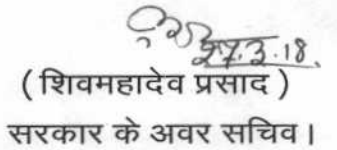 27.3.18.
( शिवमहादेव प्रसाद )
सरकार के अवर सचिव।